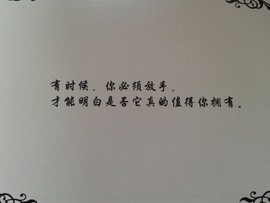 有时候，你必须放手，
才能明白是否它真的值得你拥有。